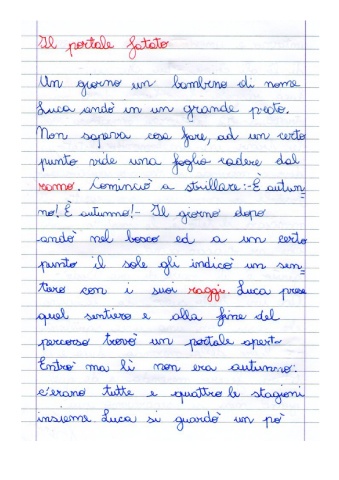 Il portale fatato
Un giorno un bambino di nome
Luca andò in un grande prato.
Non sapeva cosa fare, ad un certo
punto vide una foglia cadere dal
ramo. Cominciò a strillare:-È autun=
no! È autunno!- Il giorno dopo
andò nel bosco ed a un certo
punto il sole gli indicò un sen=
tiero con i suoi raggi. Luca prese
quel sentiero e alla fine del
percorso trovò un portale aperto
Entrò ma lì non era autunno:
c'erano tutte e quattro le stagioni
insieme. Luca si guardò un pò